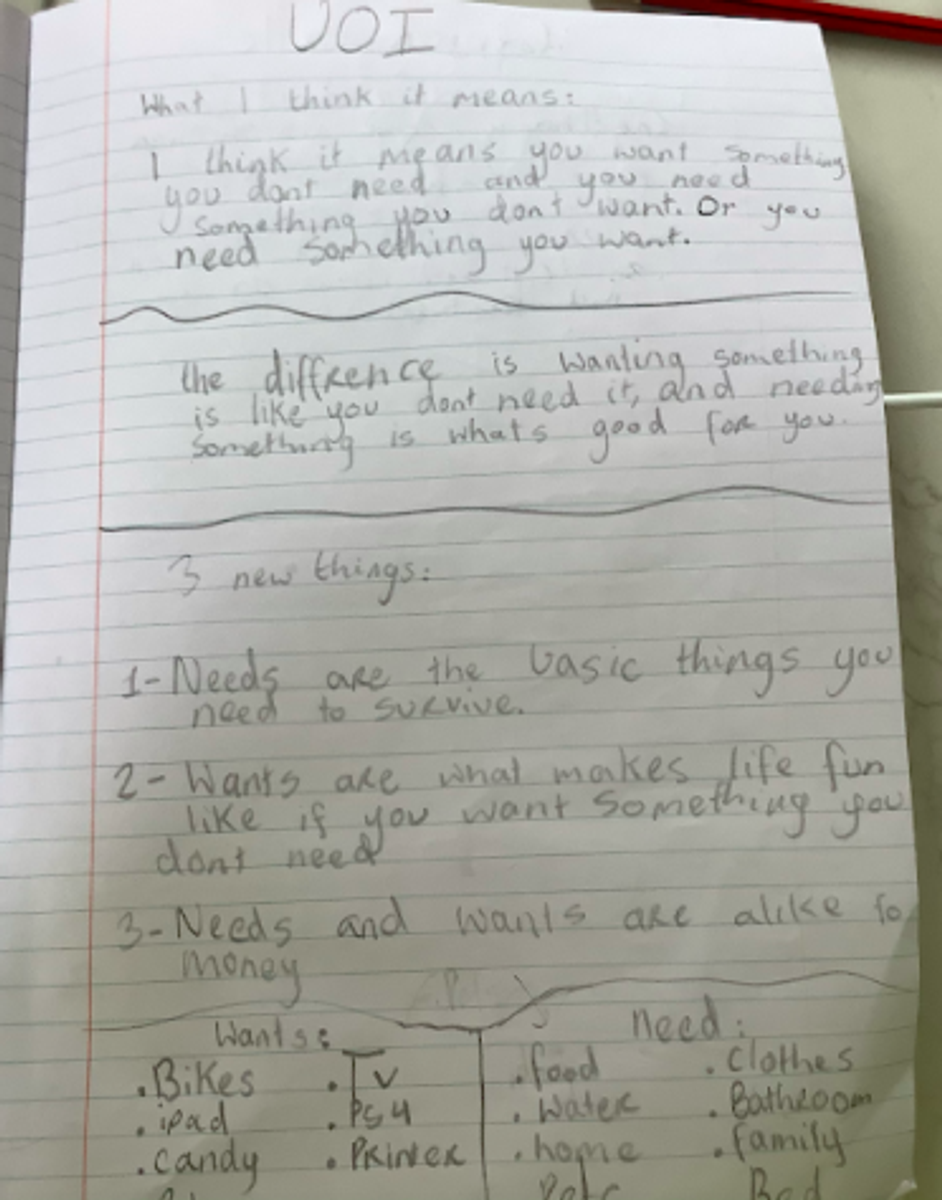 UOI
What I think it means:
I think it means you want something
you dont need and you need
something you don't want. Or you
need something you want.
the diffrence is wanting something
is like you dont need it, and needing
something is whats good for you.
3 new things:
1-Needs are the basic things you
need to survive.
2- Wants are what makes life fun
like if you want something you
dont need
3-Needs and wants are alike to
money
Wants:
.Bikes .Tv
.ipad .Ps4
.candy .Printer
need:
.food .clothes
.Water .Bathroom
.home .family